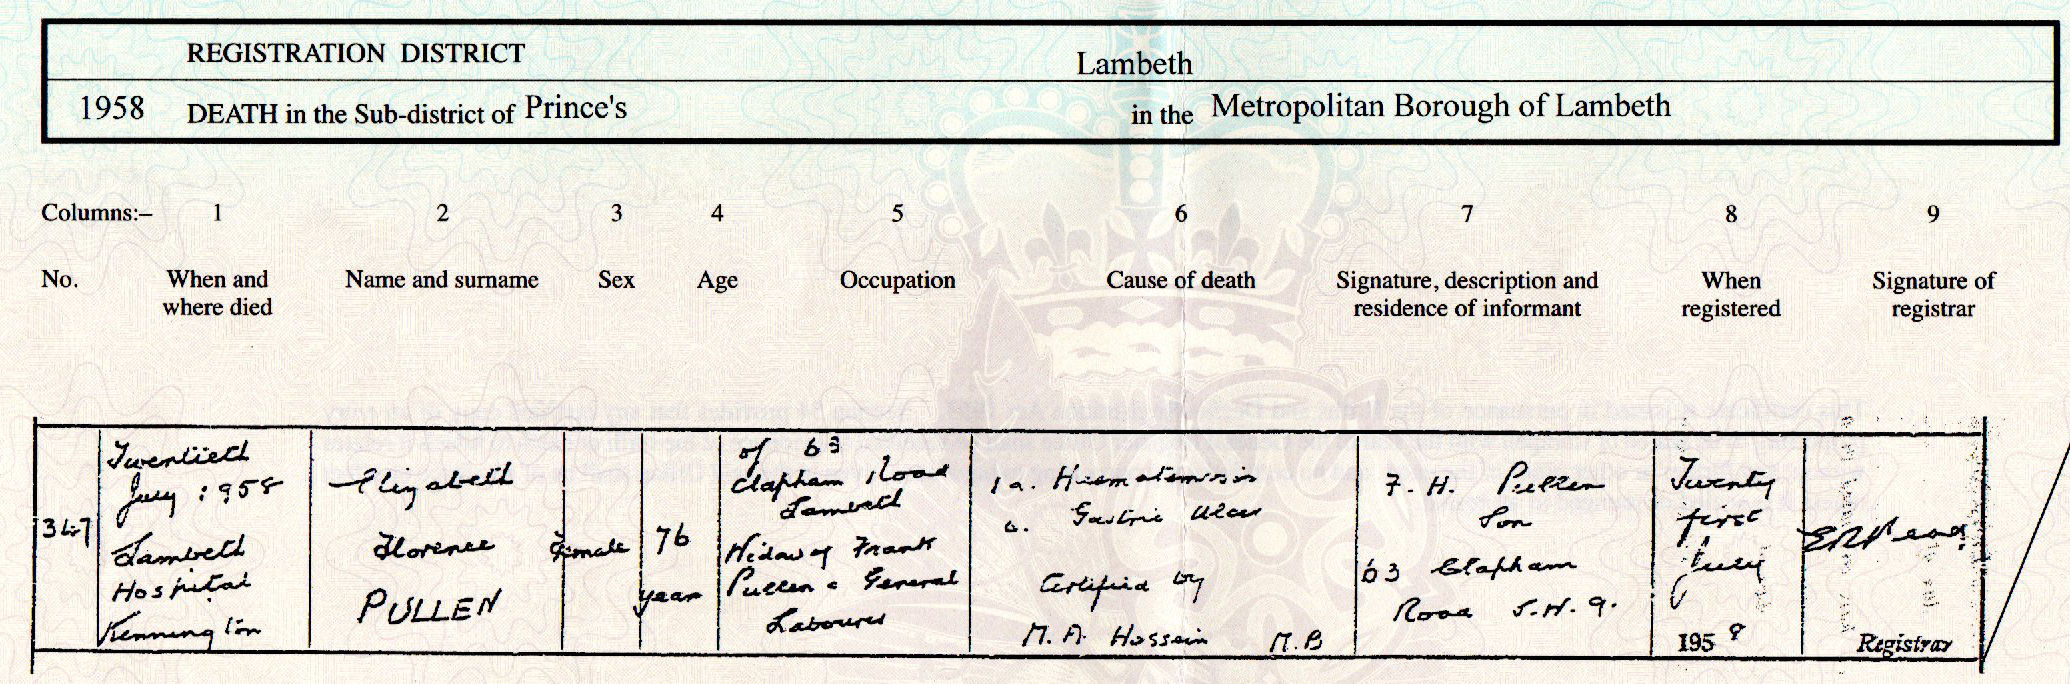 REGISTRATION DISTRICT Lambeth
1958 DEATH in the Sub-district of Prince's in the Metropolitan Borough of Lambeth
Columns:– 1 2 3 4 5 6 7 8 9
No. When and where died Name and surname Sex Age Occupation Cause of death Signature, description and residence of informant When registered Signature of registrar
347
Twentieth
July 1958
Lambeth
Hospital
Kennington
Elizabeth
Florence
PULLEN
Female
76
years
of 63
Clapham Road
Lambeth
Widow of Frank
Pullen a General
Labourer
1a. Haematemesis
b. Gastric Ulcer
Certified by
M. A. Hossein M.B
F. H. Pullen
Son
63 Clapham
Road S.W.9.
Twenty
first
July
1958
Registrar